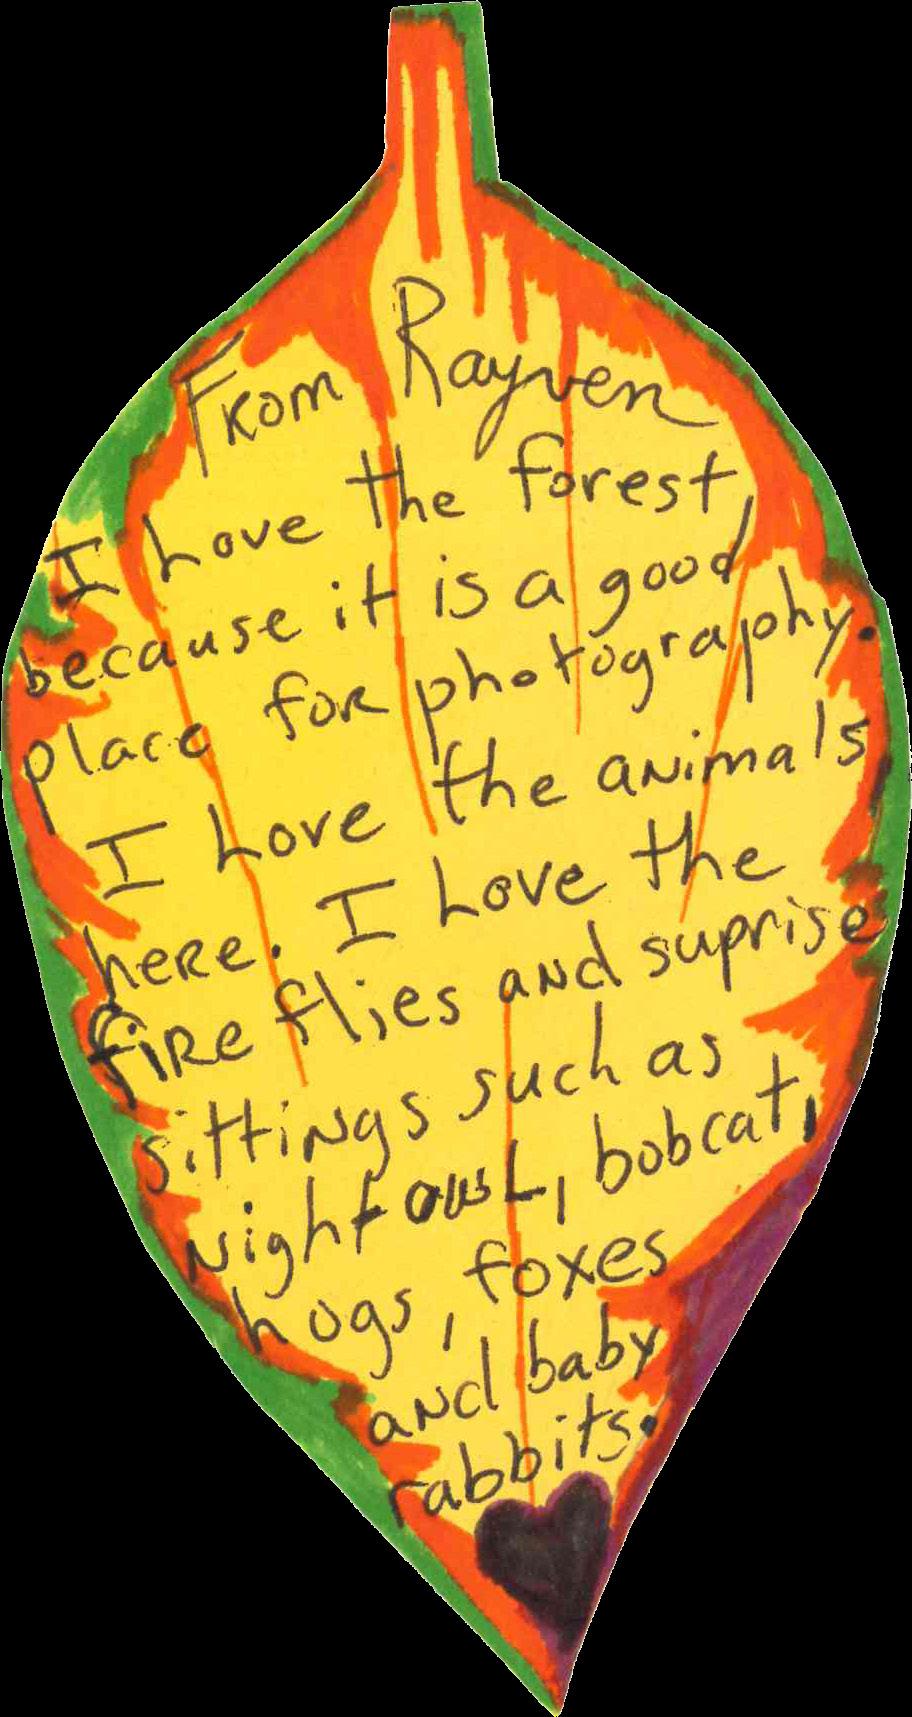 From Rayven
I Love the forest,
because it is a good
place for photography.
I Love the animals
here. I Love the
fire flies and suprise
sittings such as
night owl, bobcat,
hogs, foxes
and baby
rabbits.